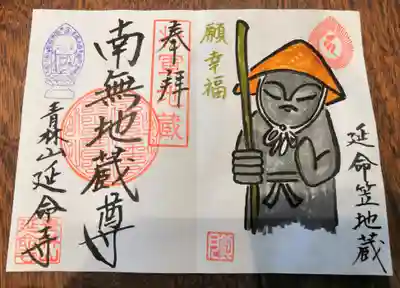 延命笠地蔵
願幸福
奉拝
南無地蔵尊
青林山延命寺